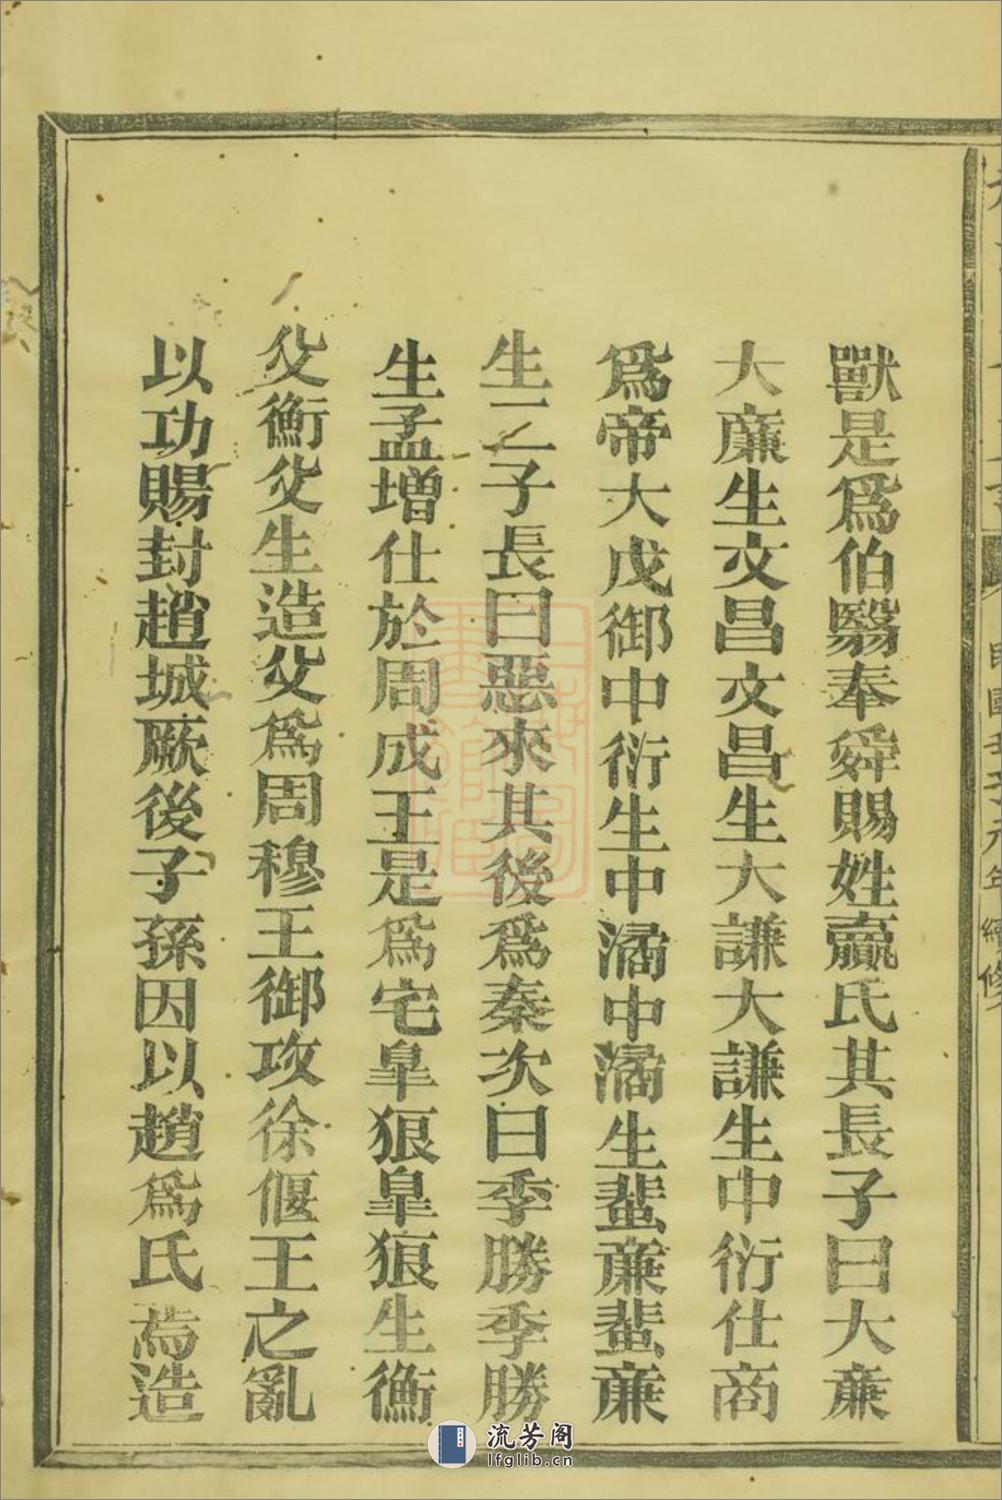 民國壬子元年續修
獸是爲伯翳奉舜賜姓嬴氏其長子曰大亷
大亷生文昌文昌生大謙大謙生中衍仕商
爲帝大戊御中衍生中潏中潏生蜚亷蜚亷
生二子長曰惡來其後爲秦次曰季勝季勝
生孟增仕於周成王是爲宅皐狼皐狼生衡
父衡父生造父爲周穆王御攻徐偃王之亂
以功賜封趙城厥後子孫因以趙爲氏焉造
流芳阁
lfglib.cn